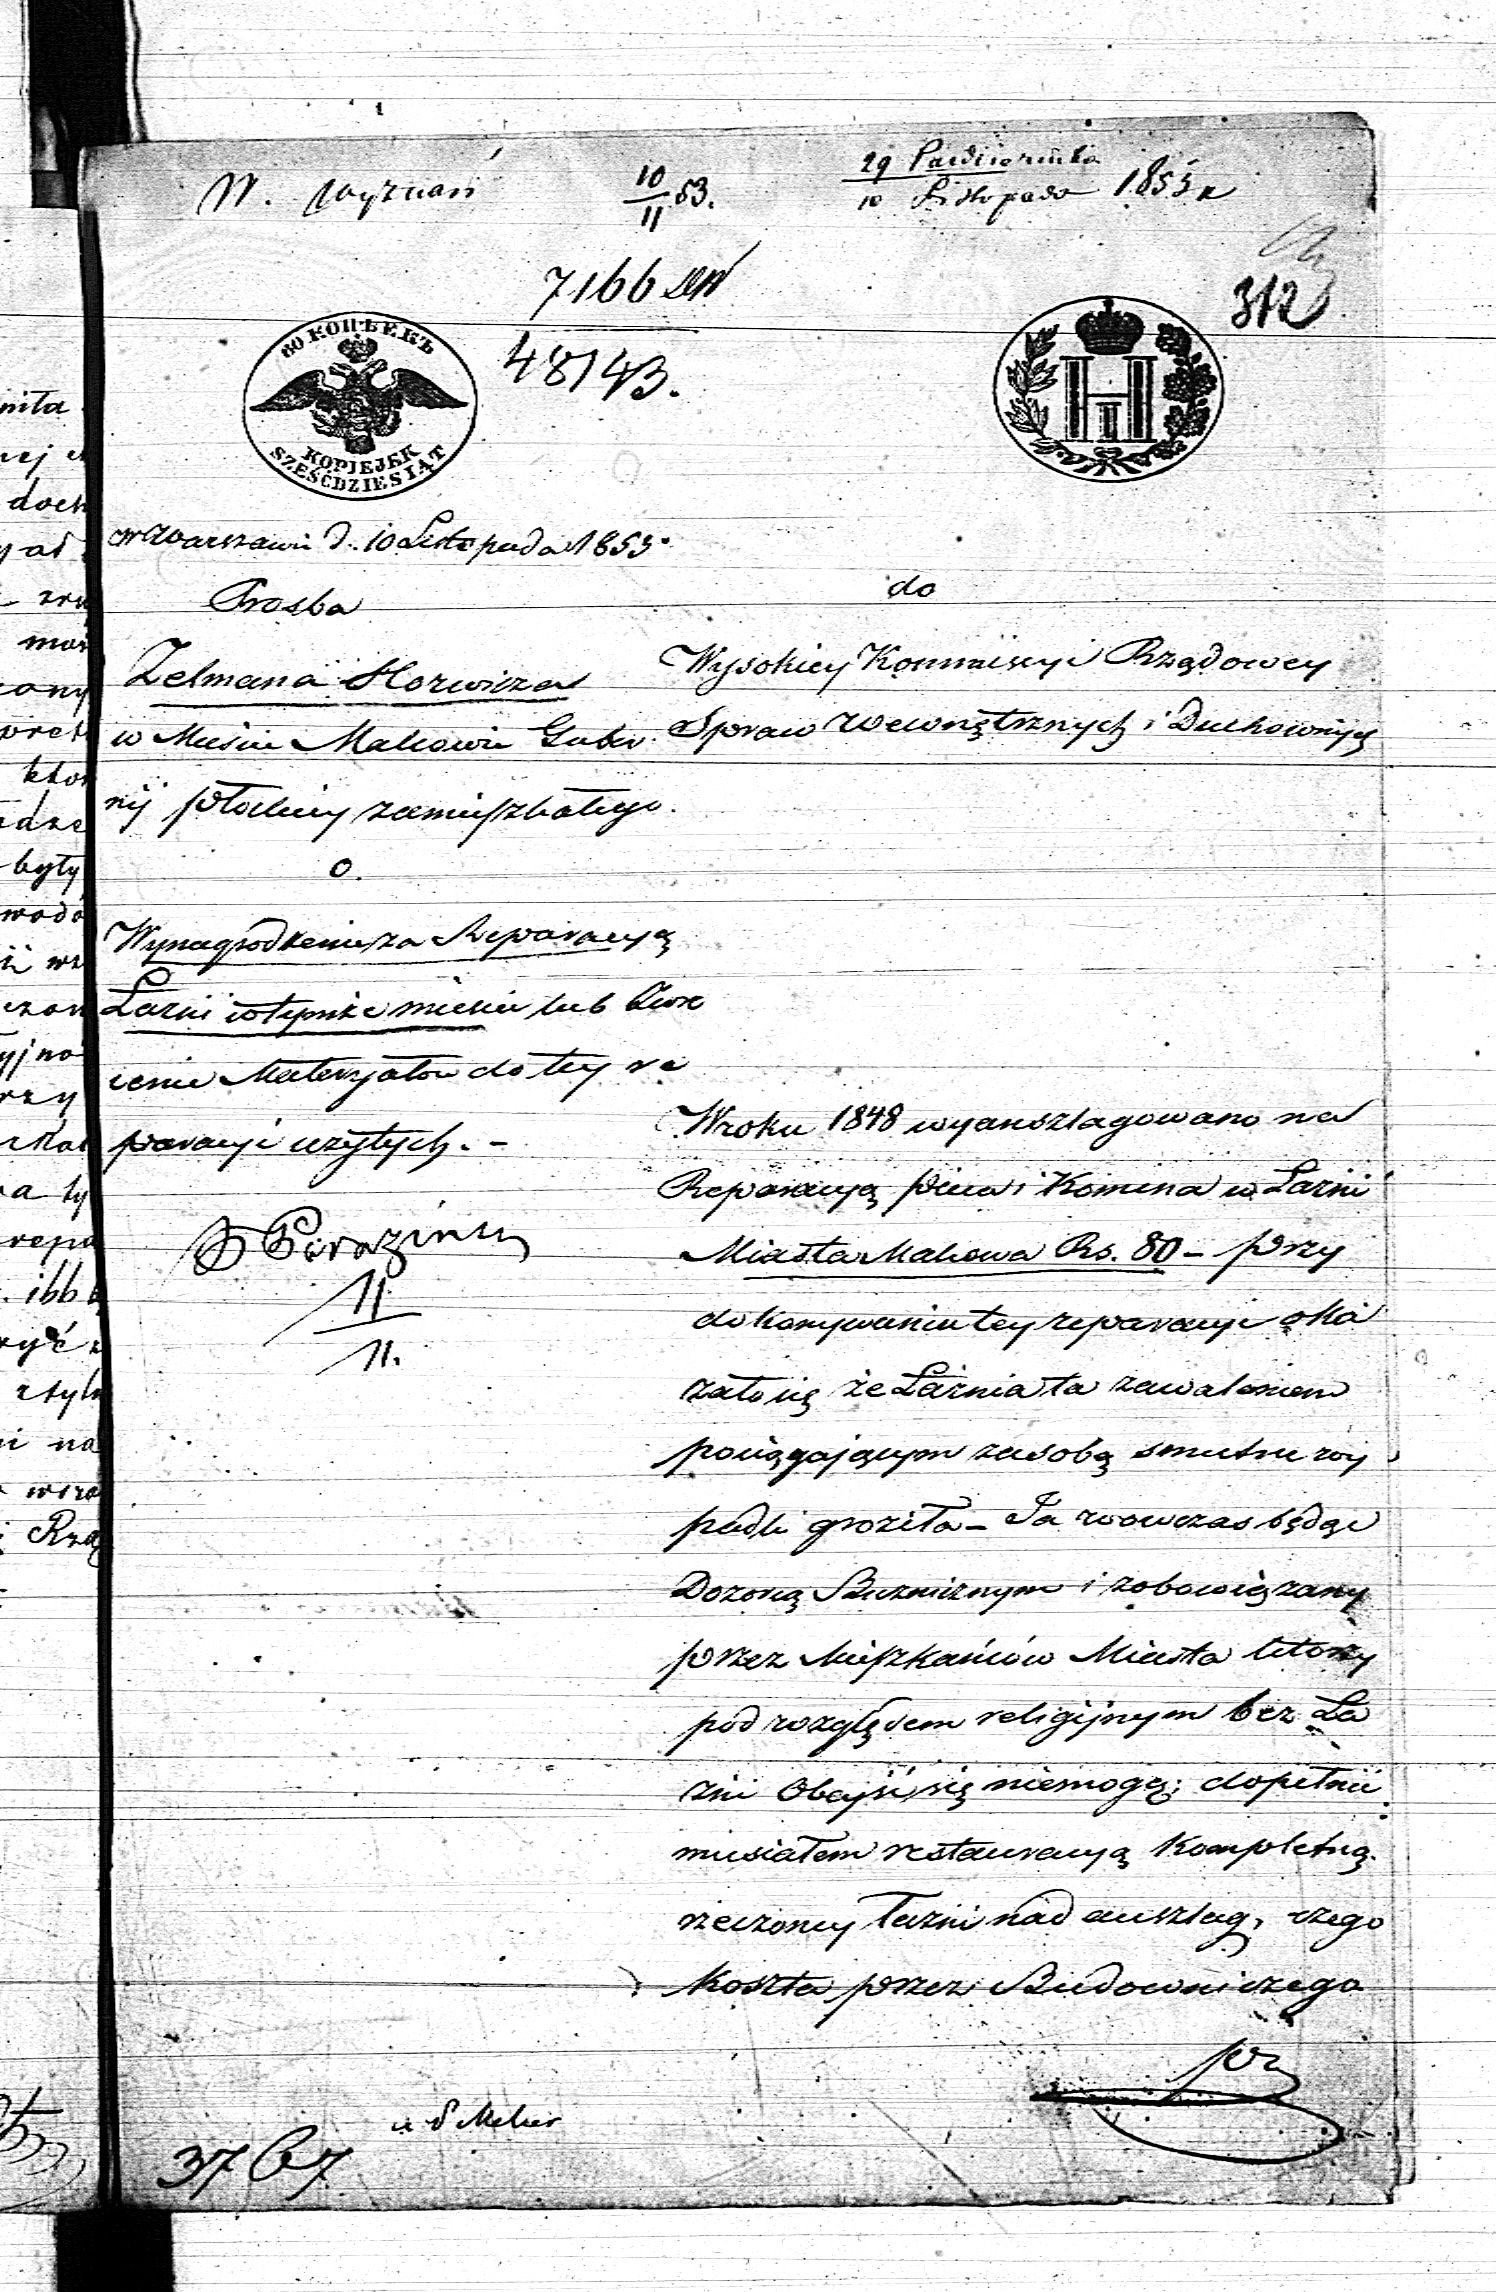 W. Wyznań
10/11 53.
29 Października
10 Listopada 1853 r
7166
48143.
312
60 КОПѢЕКЪ
KOPIEJEK
SZEŚĆDZIESIĄT
H I
w Warszawie d. 10 Listopada 1853.
Prosba
Zelmana Horwicza
w Mieście Makowie Guber
nij Płockiey zamieszkałego.
o.
Wynagrodzenie za Reparacyą
Łazni w tymże mieście lub Zwró
cenie Materyałów do tey re
paracyi użytych. -
11
11.
do
Wysokiey Kommissyi Rządowey
Spraw Wewnętrznych i Duchownych
W roku 1848 wyanszlagowano na
Reparacyą pieca i Komina w Łazni
Miasta Makowa Rs. 80 - przy
dokonywaniu tey reparacyi oka
zało się że Łaznia ta zawaleniem
pociągającym za sobą smutne wy
padki groziła - Ja wowczas będąc
Dozorcą Bużnicznym i zobowiązany
przez Mieszkańców Miasta ktorzy
pod względem religijnym bez Ła
zni Obejść się niemogą; dopełnić
musiałem restauracyą Kompletną
rzeczoney Łazni nad anszlag, czego
Koszta przez Budowniczego
3767